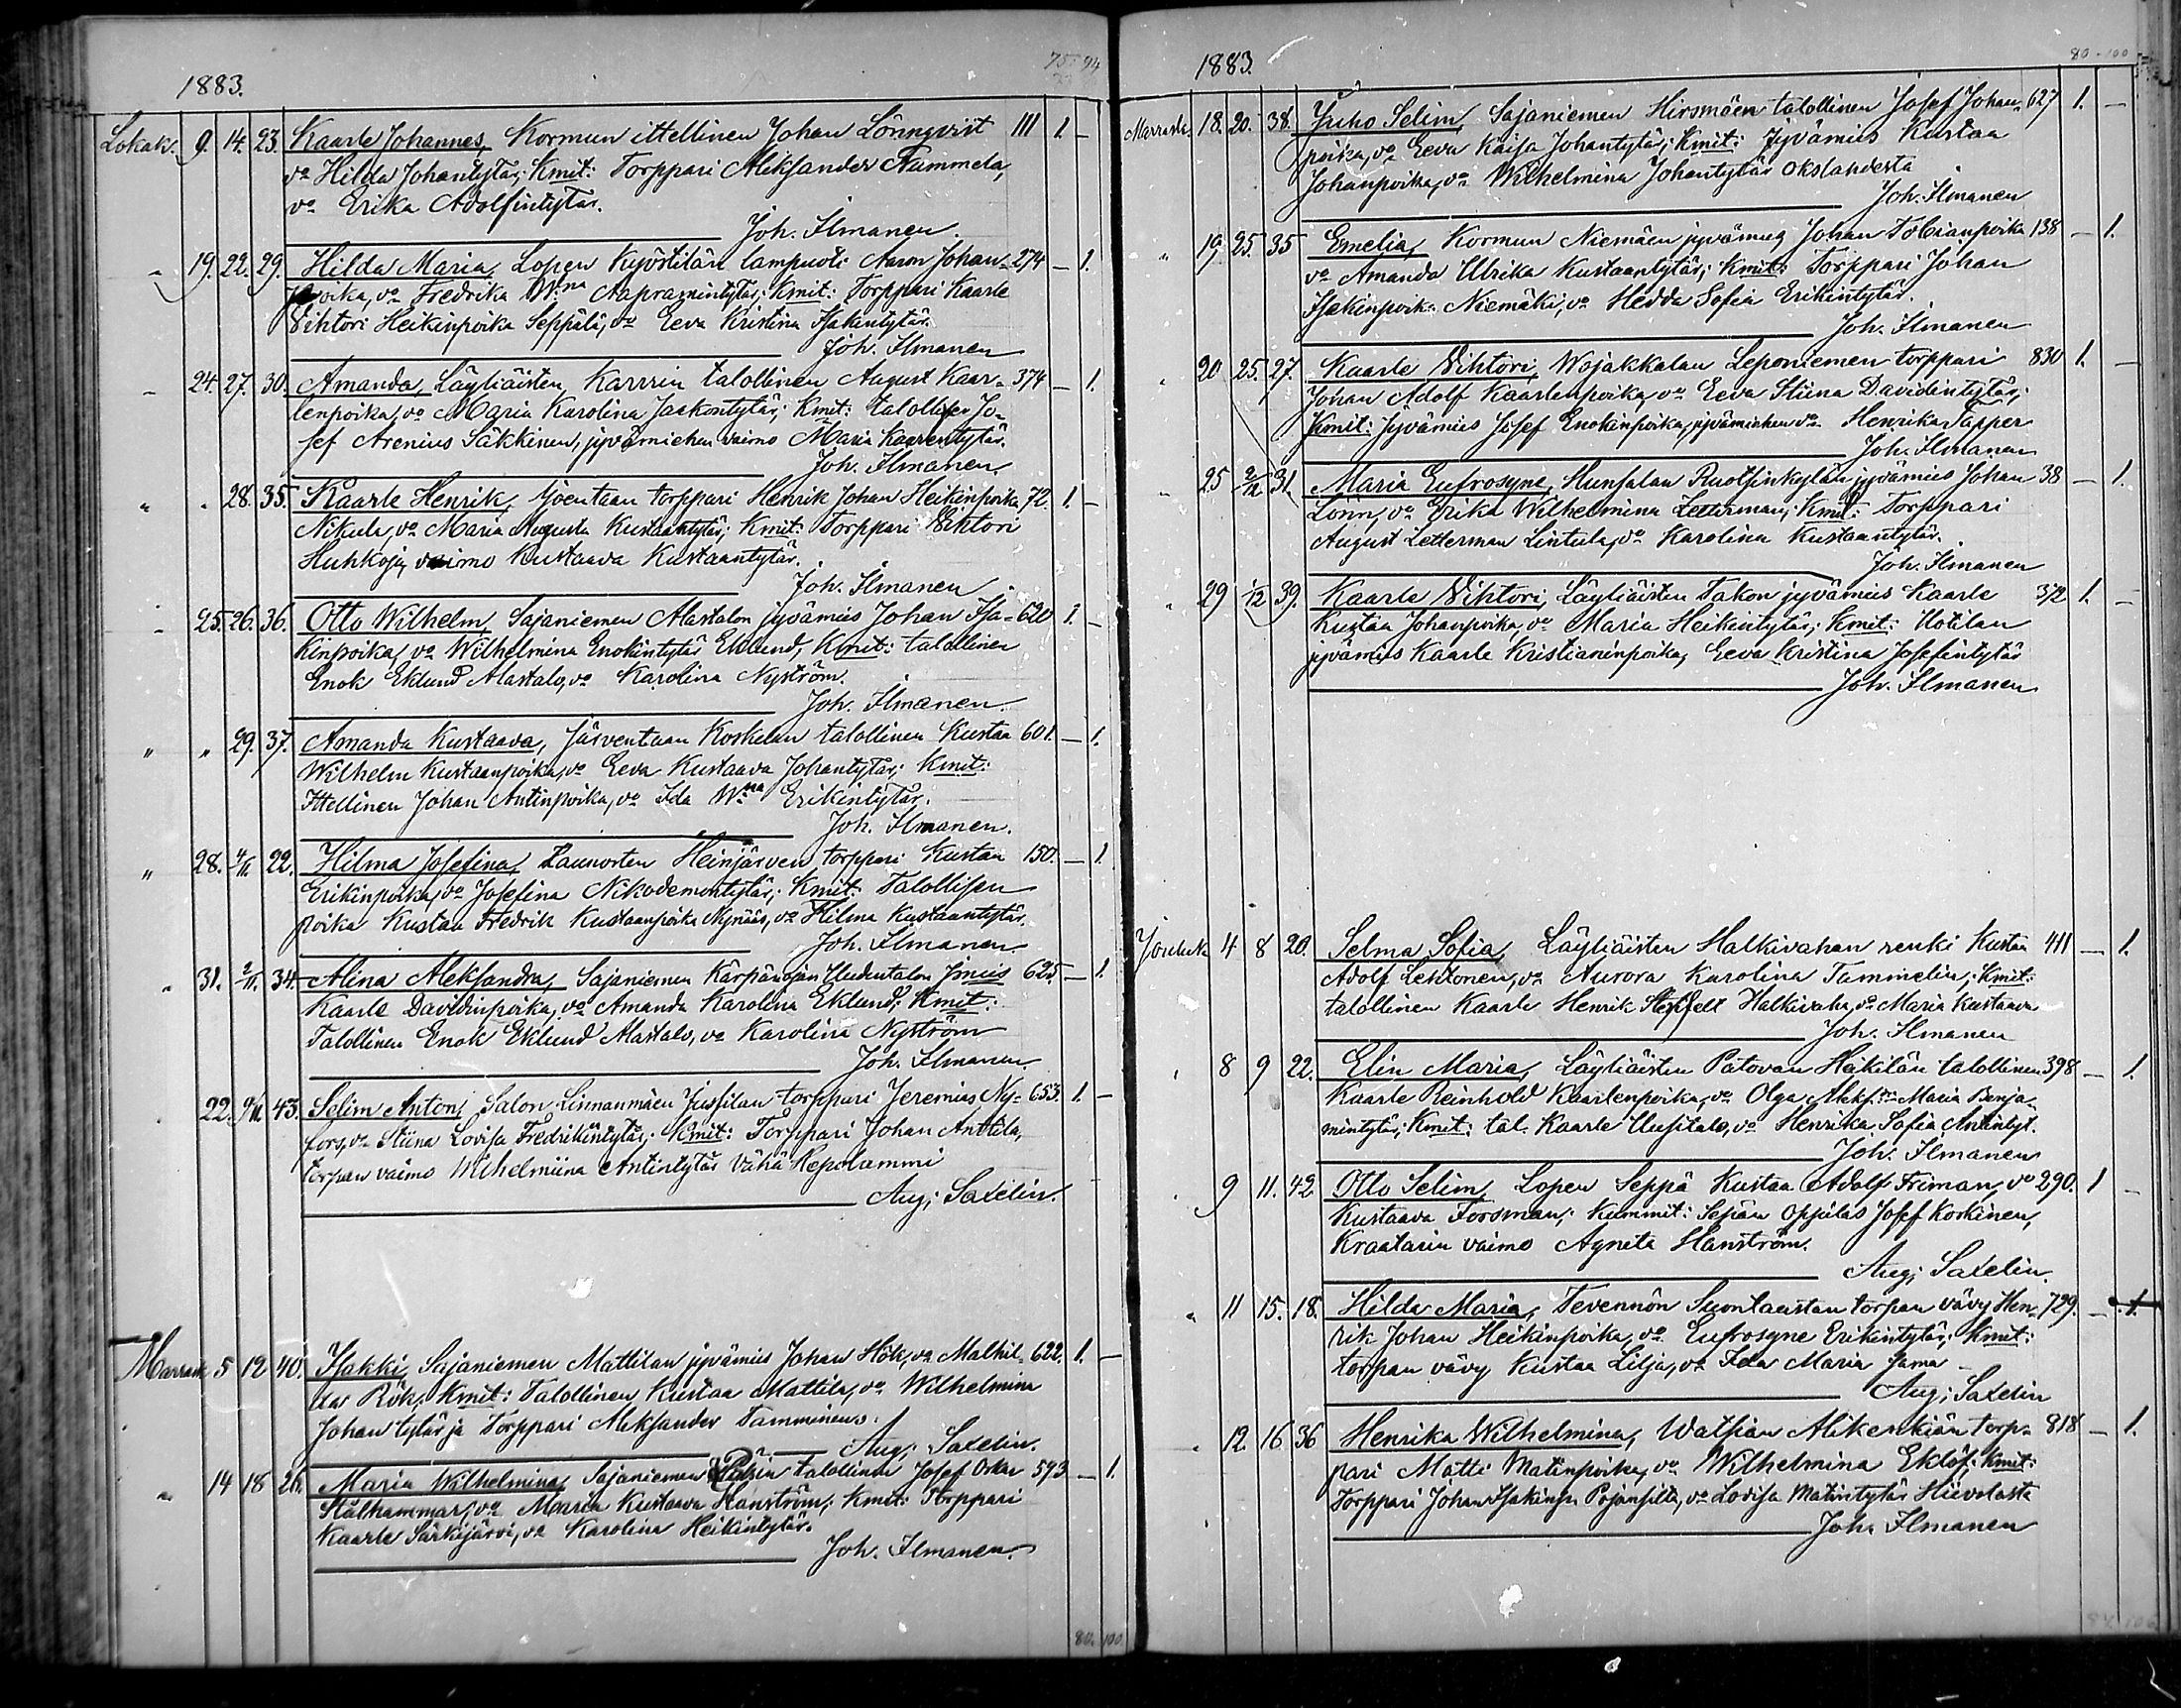 1883.
75 94
Lokak. 9. 14. 23. Kaarle Johannes, Kormun ittellinen Johan Lönnqvist 111 1. –
vo Hilda Johantytär; Kmit: Torppari Aleksander Nummela,
vo Erika Adolfintytär.
Joh. Ilmanen.
" 19. 22. 29. Hilda Maria, Lopen Kyöstilän lampuoti Aaron Johan- 274 – 1.
poika, vo Fredrika Wna Aapramintytär; Kmit: Torppari Kaarle
Vihtori Heikinpoika Seppälä, vo Eeva Kristina Isakintytär.
Joh. Ilmanen
" 24. 27. 30. Amanda, Läyliäisten, Karrin talollinen August Kaar- 374 – 1.
lenpoika, vo Maria Karolina Jaakontytär; Kmit: talollisen Jo-
sef Arenius Säkkinen, jyvämiehen vaimo Maria Kaarentytär.
Joh. Ilmanen.
" " 28. 35. Kaarle Henrik, Joentaan torppari Henrik Johan Heikinpoika 72. 1. –
Nikula, vo Maria Augusta Kustaantytär; Kmit: Torppari Vihtori
Huhkoja, vaimo Kustaava Kustaantytär.
Joh. Ilmanen
" 25. 26. 36. Otto Wilhelm, Sajaniemen Alastalon jyvämies Johan Isa- 620 1. –
kinpoika, vo Wilhelmina Enokintytär Eklund, Kmit: talollinen
Enok Eklund Alastalo, vo Karolina Nyström.
Joh. Ilmanen.
" " 29. 37. Amanda Kustaava, Järventaan Koskelan talollinen Kustaa 601. – 1.
Wilhelm Kustaanpoika, vo Eeva Kustaava Johantytär; Kmit:
Ittellinen Johan Antinpoika, vo Ida Wna Erikintytär.
Joh. Ilmanen.
" 28. 4/11 22. Hilma Josefina, Launosten Heinjärven torppari Kustaa 150. – 1.
Erikinpoika, vo Josefina Nikodemontytär; Kmit: Talollisen
poika Kustaa Fredrik Kustaanpoika Mynäär, vo Hilma Kustaantytär.
Joh. Ilmanen
" 31. 2/11. 34. Alina Aleksandra, Sajaniemen Kärpänojan Uudentalon Jmies 625. – 1.
Kaarle Davidinpoika, vo Amanda Karolina Eklund; Kmit:
Talollinen Enok Eklund Alastalo, vo Karolina Nyström
Joh. Ilmanen.
" 22. 9/11 43. Selim Anton, Salon Linnanmäen Jussilan torppari Jeremias Ny- 653. 1. –
fors, vo Stiina Lovisa Fredrikintytär; Kmit: Torppari Johan Anttila,
torpan vaimo Wilhelmiina Antintytär Vähä Repolammi
Aug; Saxelin.
Marrask 5 12 40. Isakki, Sajaniemen Mattilan jyvämies Johan Hök, vo Mathil- 622. 1. –
da Rök; Kmit: Talollinen Kustaa Mattila, vo Wilhelmina
Johantytär ja Torppari Aleksander Tamminen.
Aug; Saxelin.
" 14 18 26. Maria Wilhelmina, Sajaniemen talollinen Josef Oskar 593 – 1.
Stålhammar, vo Maria Kustaava Hanström; Kmit: Torppari
Kaarle Särkijärvi, vo Karolina Heikintytär.
Joh. Ilmanen.
80. 100.
1883.
80 - 100
Marrask 18. 20. 38. Juho Selim, Sajaniemen Hirsmäen talollinen Josef Johan- 627 1. –
poika, vo Eeva Kaisa Johantytär; Kmit: Jyvämies Kustaa
Johanpoika, vo Wilhelmina Johantytär Okslahdesta
Joh. Ilmanen
" 19. 25. 35 Emelia, Kormun Niemäen jyvämies Johan Tobianpoika 138 – 1.
vo Amanda Ulrika Kustaantytär; Kmit: Torppari Johan
Isakinpoik. Niemäki, vo Hedda Sofia Erikintytär.
Joh. Ilmanen
" 20 25. 27. Kaarle Vihtori, Wojakkalan Leponiemen torppari 830 1. –
Johan Adolf Kaarlenpoika, vo Eeva Stiina Davidintytär;
Kmit: Jyvämies Josef Enokinpoika, jyvämiehen vo Henrika Tapper
Joh. Ilmanen
" 25 2/12 31. Maria Eufrosyne, Hunsalan Ruotsinkylän jyvämies Johan 38 – 1.
Lönn, vo Erika Wilhelmina Zetterman; Kmit: Torppari
August Zetterman Lintula, vo Karolina Kustaantytär.
Joh. Ilmanen
" 29 1/12 39. Kaarle Vihtori, Läyliäisten Takon jyvämies Kaarle 372 1. –
Kustaa Johanpoika, vo Maria Heikintytär; Kmit: Uotilan
jyvämies Kaarle Kristianinpoika, Eeva Kristina Josefintytär
Joh. Ilmanen
Jouluk 4 8 20. Selma Sofia, Läyliäisten Halkivahan renki Kustaa 411 – 1.
Adolf Lehtonen, vo Aurora Karolina Tammelin; Kmit:
talollinen Kaarle Henrik Halkivaha, vo Maria Kustaava
Joh. Ilmanen
" 8 9 22. Elin Maria, Läyliäisten Patovan Häkilän talollinen 398 – 1.
Kaarle Reinhold Kaarlenpoika, vo Olga Maria Benja-
mintytär; Kmit: tal. Kaarle Uusitalo, vo Henrika Sofia Antintyt.
Joh. Ilmanen
" 9 11. 42. Otto Selim, Lopen Seppä Kustaa Adolf Friman, vo 290. 1 –
Kustaava Forsman; Kummit: Sepän oppilas Josef Koskinen,
Kraatarin vaimo Agneta Hanström.
Aug; Saxelin.
" 11 15. 18. Hilda Maria, Tevennön Suontaustan torpan vävy Hen- 729. – 1.
rik Johan Heikinpoika, vo Eufrosyne Erikintytär; Kmit:
torpan vävy Kustaa Lilja, vo Ida Maria sama –
Aug; Saxelin
" 12. 16 36 Henrika Wilhelmina, Watsian Alikenkiän torp- 818 – 1.
pari Matti Matinpoika, vo Wilhelmina Eklöf; Kmit:
Torppari Johan Isakinp. Pojansilta, vo Lovisa Matintytär Hiivolasta
Joh. Ilmanen
84. 106